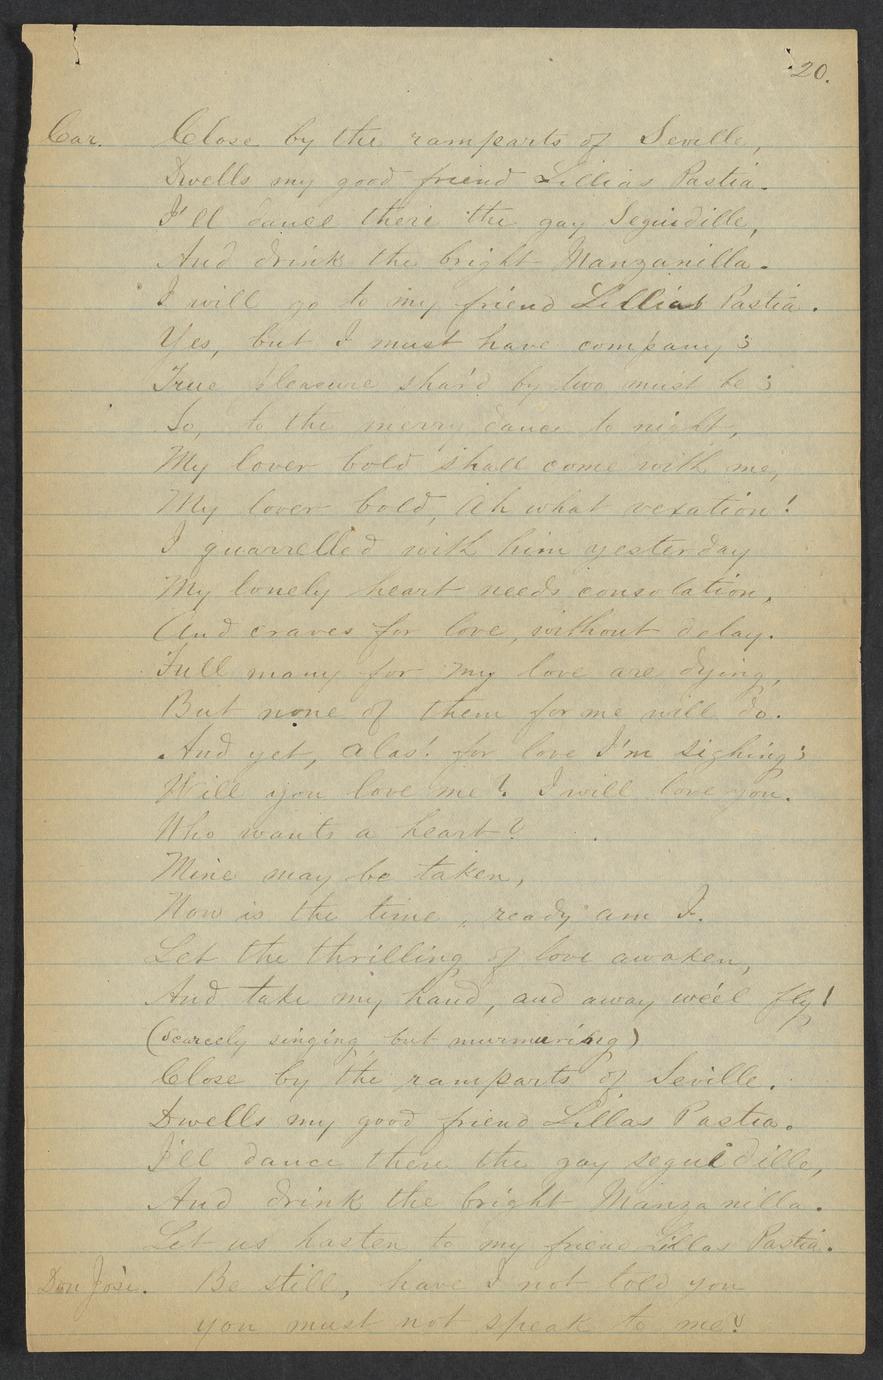 20.
Car. Close by the ramparts of Seville,
Dwells my good friend Lillias Pastia.
I'll dance there the gay Seguidille,
And drink the bright Manzanilla.
I will go to my friend Lillias Pastia.
Yes, but I must have company;
True pleasure shar'd by two must be;
So, to the merry dance to night,
My lover bold shall come with me,
My lover bold, Ah what vexation!
I quarrelled with him yesterday
My lonely heart needs consolation,
And craves for love, without delay.
Full many for my love are dying,
But none of them for me will do.
And yet, alas! for love I'm sighing;
Will you love me? I will love you.
Who wants a heart?
Mine may be taken,
Now is the time, ready am I.
Let the thrilling of love awaken,
And take my hand, and away we'el fly!
(Scarcely singing, but murmuring)
Close by the ramparts of Seville.
Dwells my good friend Lillas Pastia.
I'll dance there the gay seguidille,
And drink the bright Manzanilla.
Let us hasten to my friend Lillas Pastia.
Don José. Be still, have I not told you
you must not speak to me?